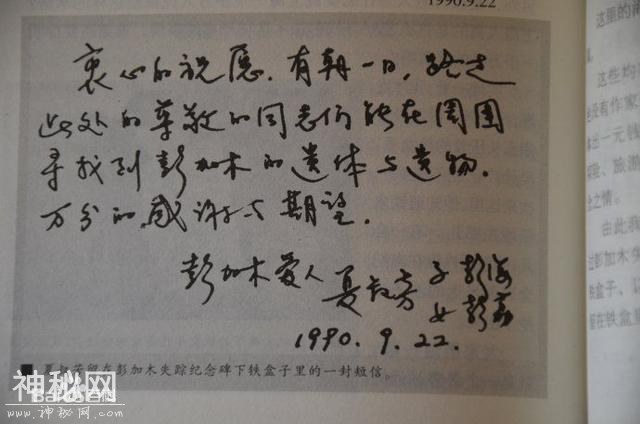 1990.9.22
衷心的祝愿.有朝一日,路过
此处的尊敬的同志们能在周围
寻找到彭加木的遗体与遗物.
万分的感谢与期望.
彭加木爱人 夏叔芳 子 彭海
女 彭荔
1990.9.22.
■ 夏叔芳留在彭加木失踪纪念碑下铁盒子里的一封短信。
神秘网
www.神秘网.com
这里的
这些
没有作家
一元
旅游
之情。
由此
彭加木失
铁盒子、
在铁盒里